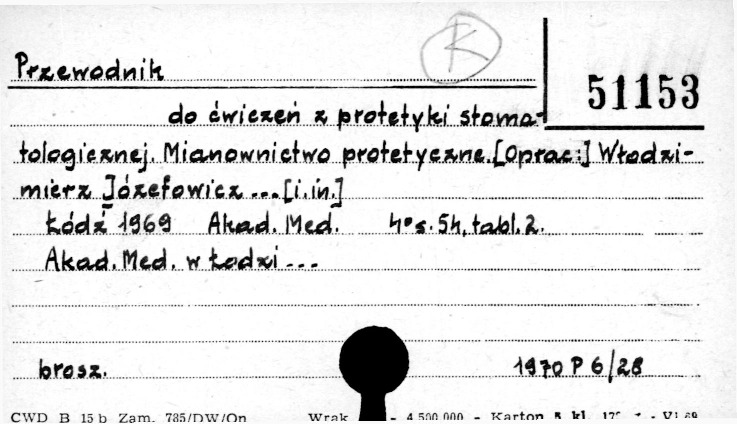 K
Przewodnik
51153
do ćwiczeń z protetyki stoma-
tologicznej. Mianownictwo protetyczne. [Oprac:] Włodzi-
mierz Józefowicz ... [i.in.]
Łódź 1969 Akad. Med. 4° s. 54, tabl. 2.
Akad. Med. w Łodzi ...
brosz. 1970 P 6/28
CWD B 15 b Zam. 785/DW/On Wrak - 4.500.000 - Karton 5 kl. - VI.69